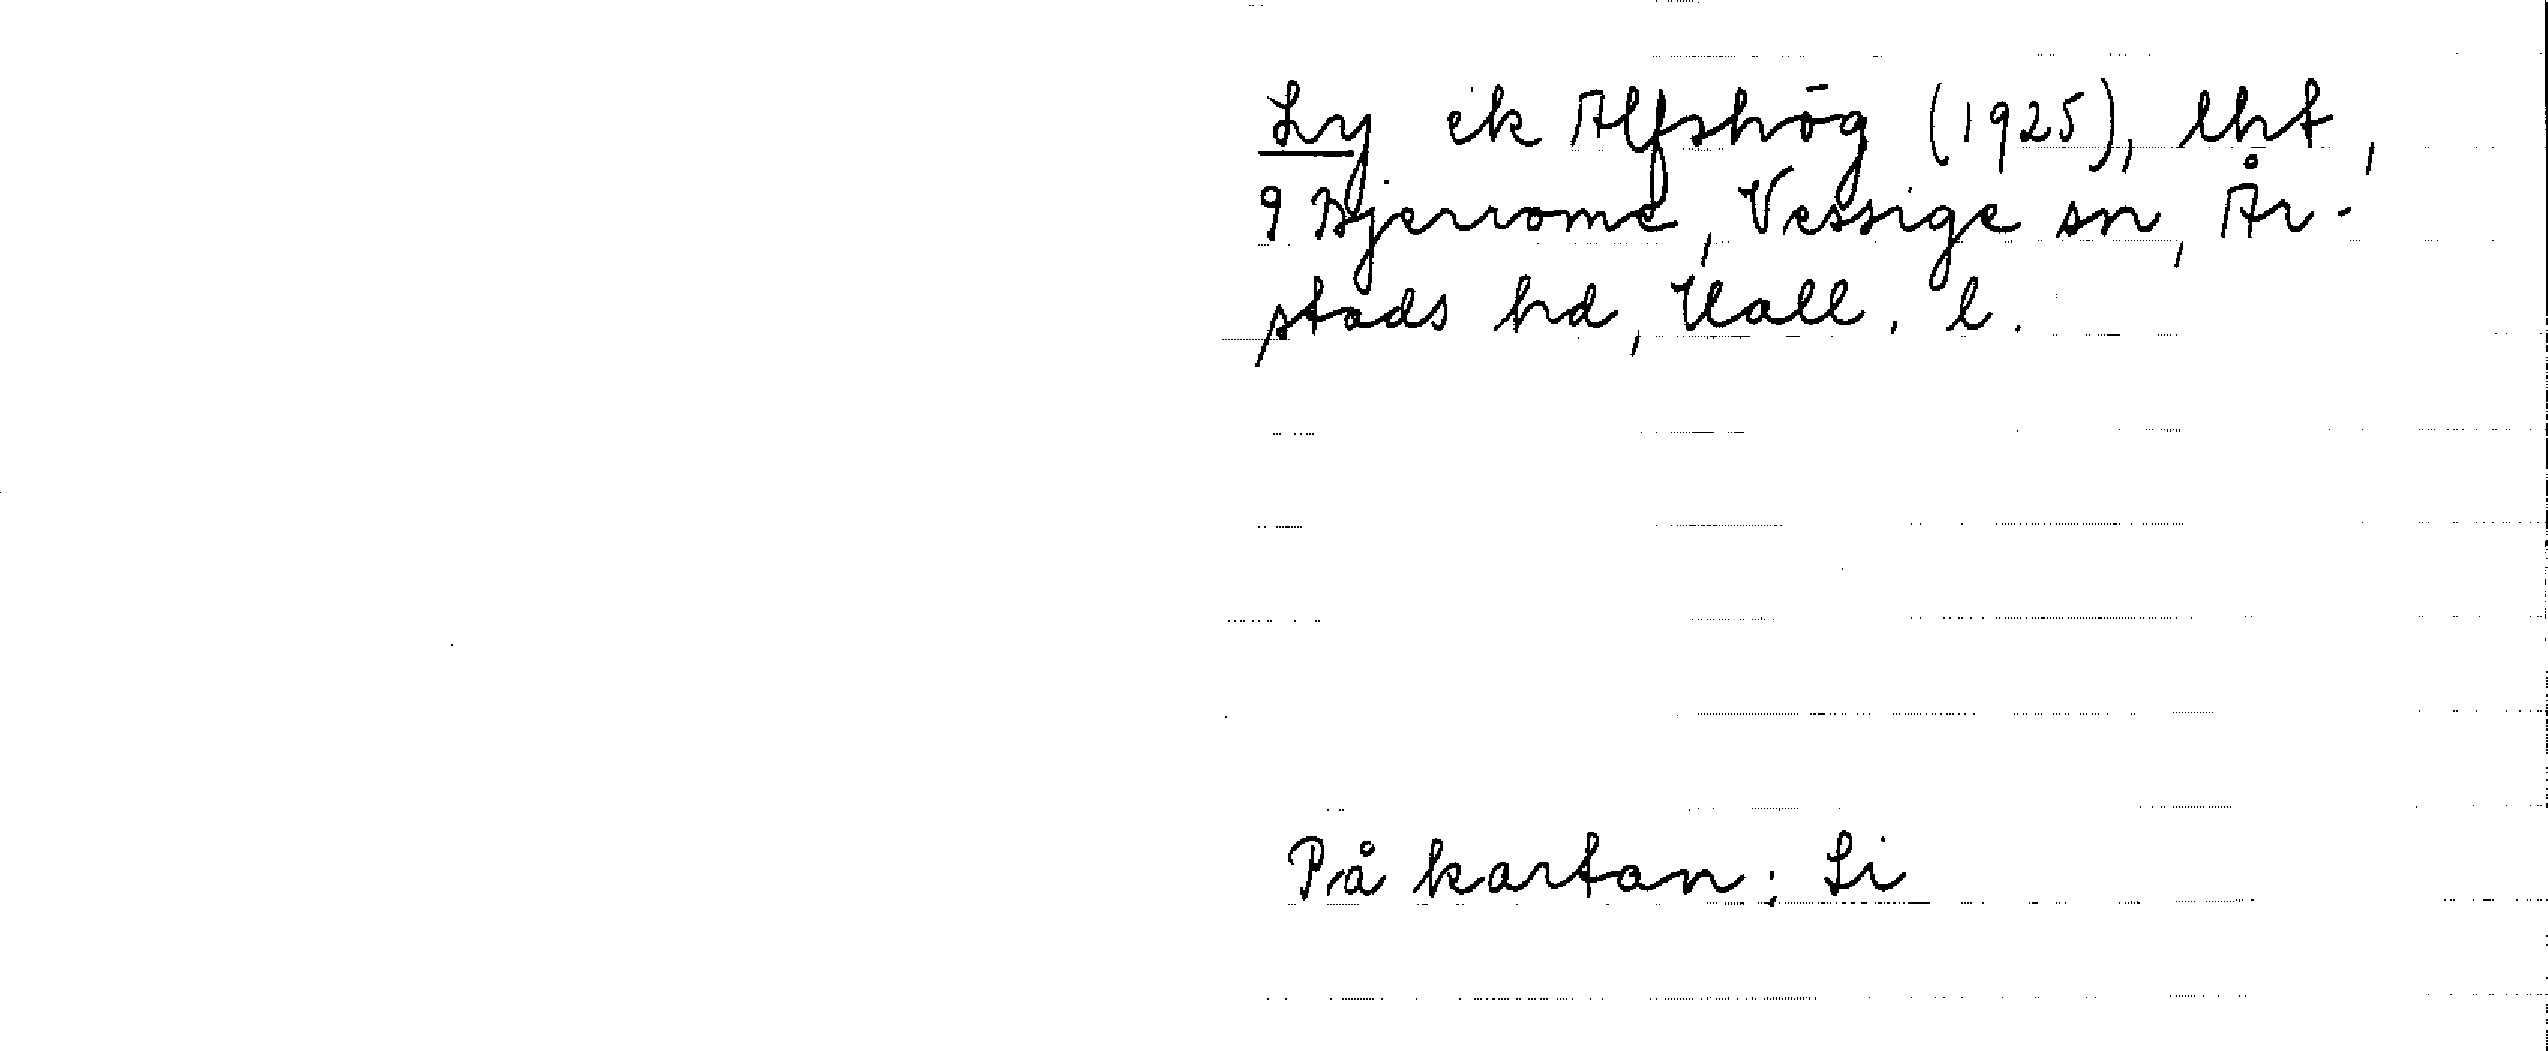 Ly ek Alfshög (1925), lht,
9 Bjerrome, Vessige sn, År-
stads hd, Hall. l.
På kartan: Li